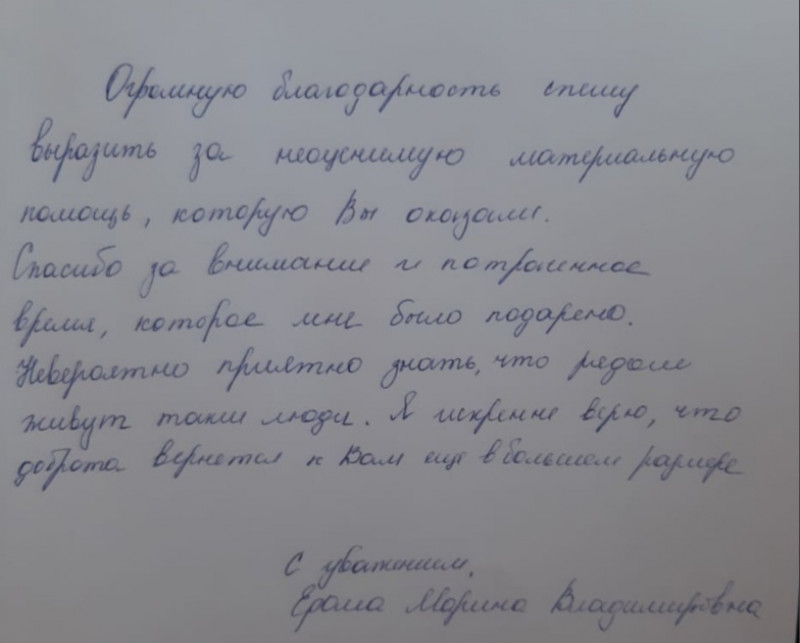 Огромную благодарность спешу
выразить за неоценимую материальную
помощь, которую Вы оказали.
Спасибо за внимание и потраченное
время, которое мне было подарено.
Невероятно приятно знать, что рядом
живут такие люди. Я искренне верю, что
доброта вернется к Вам еще в большем размере
С уважением,
Марина Владимировна